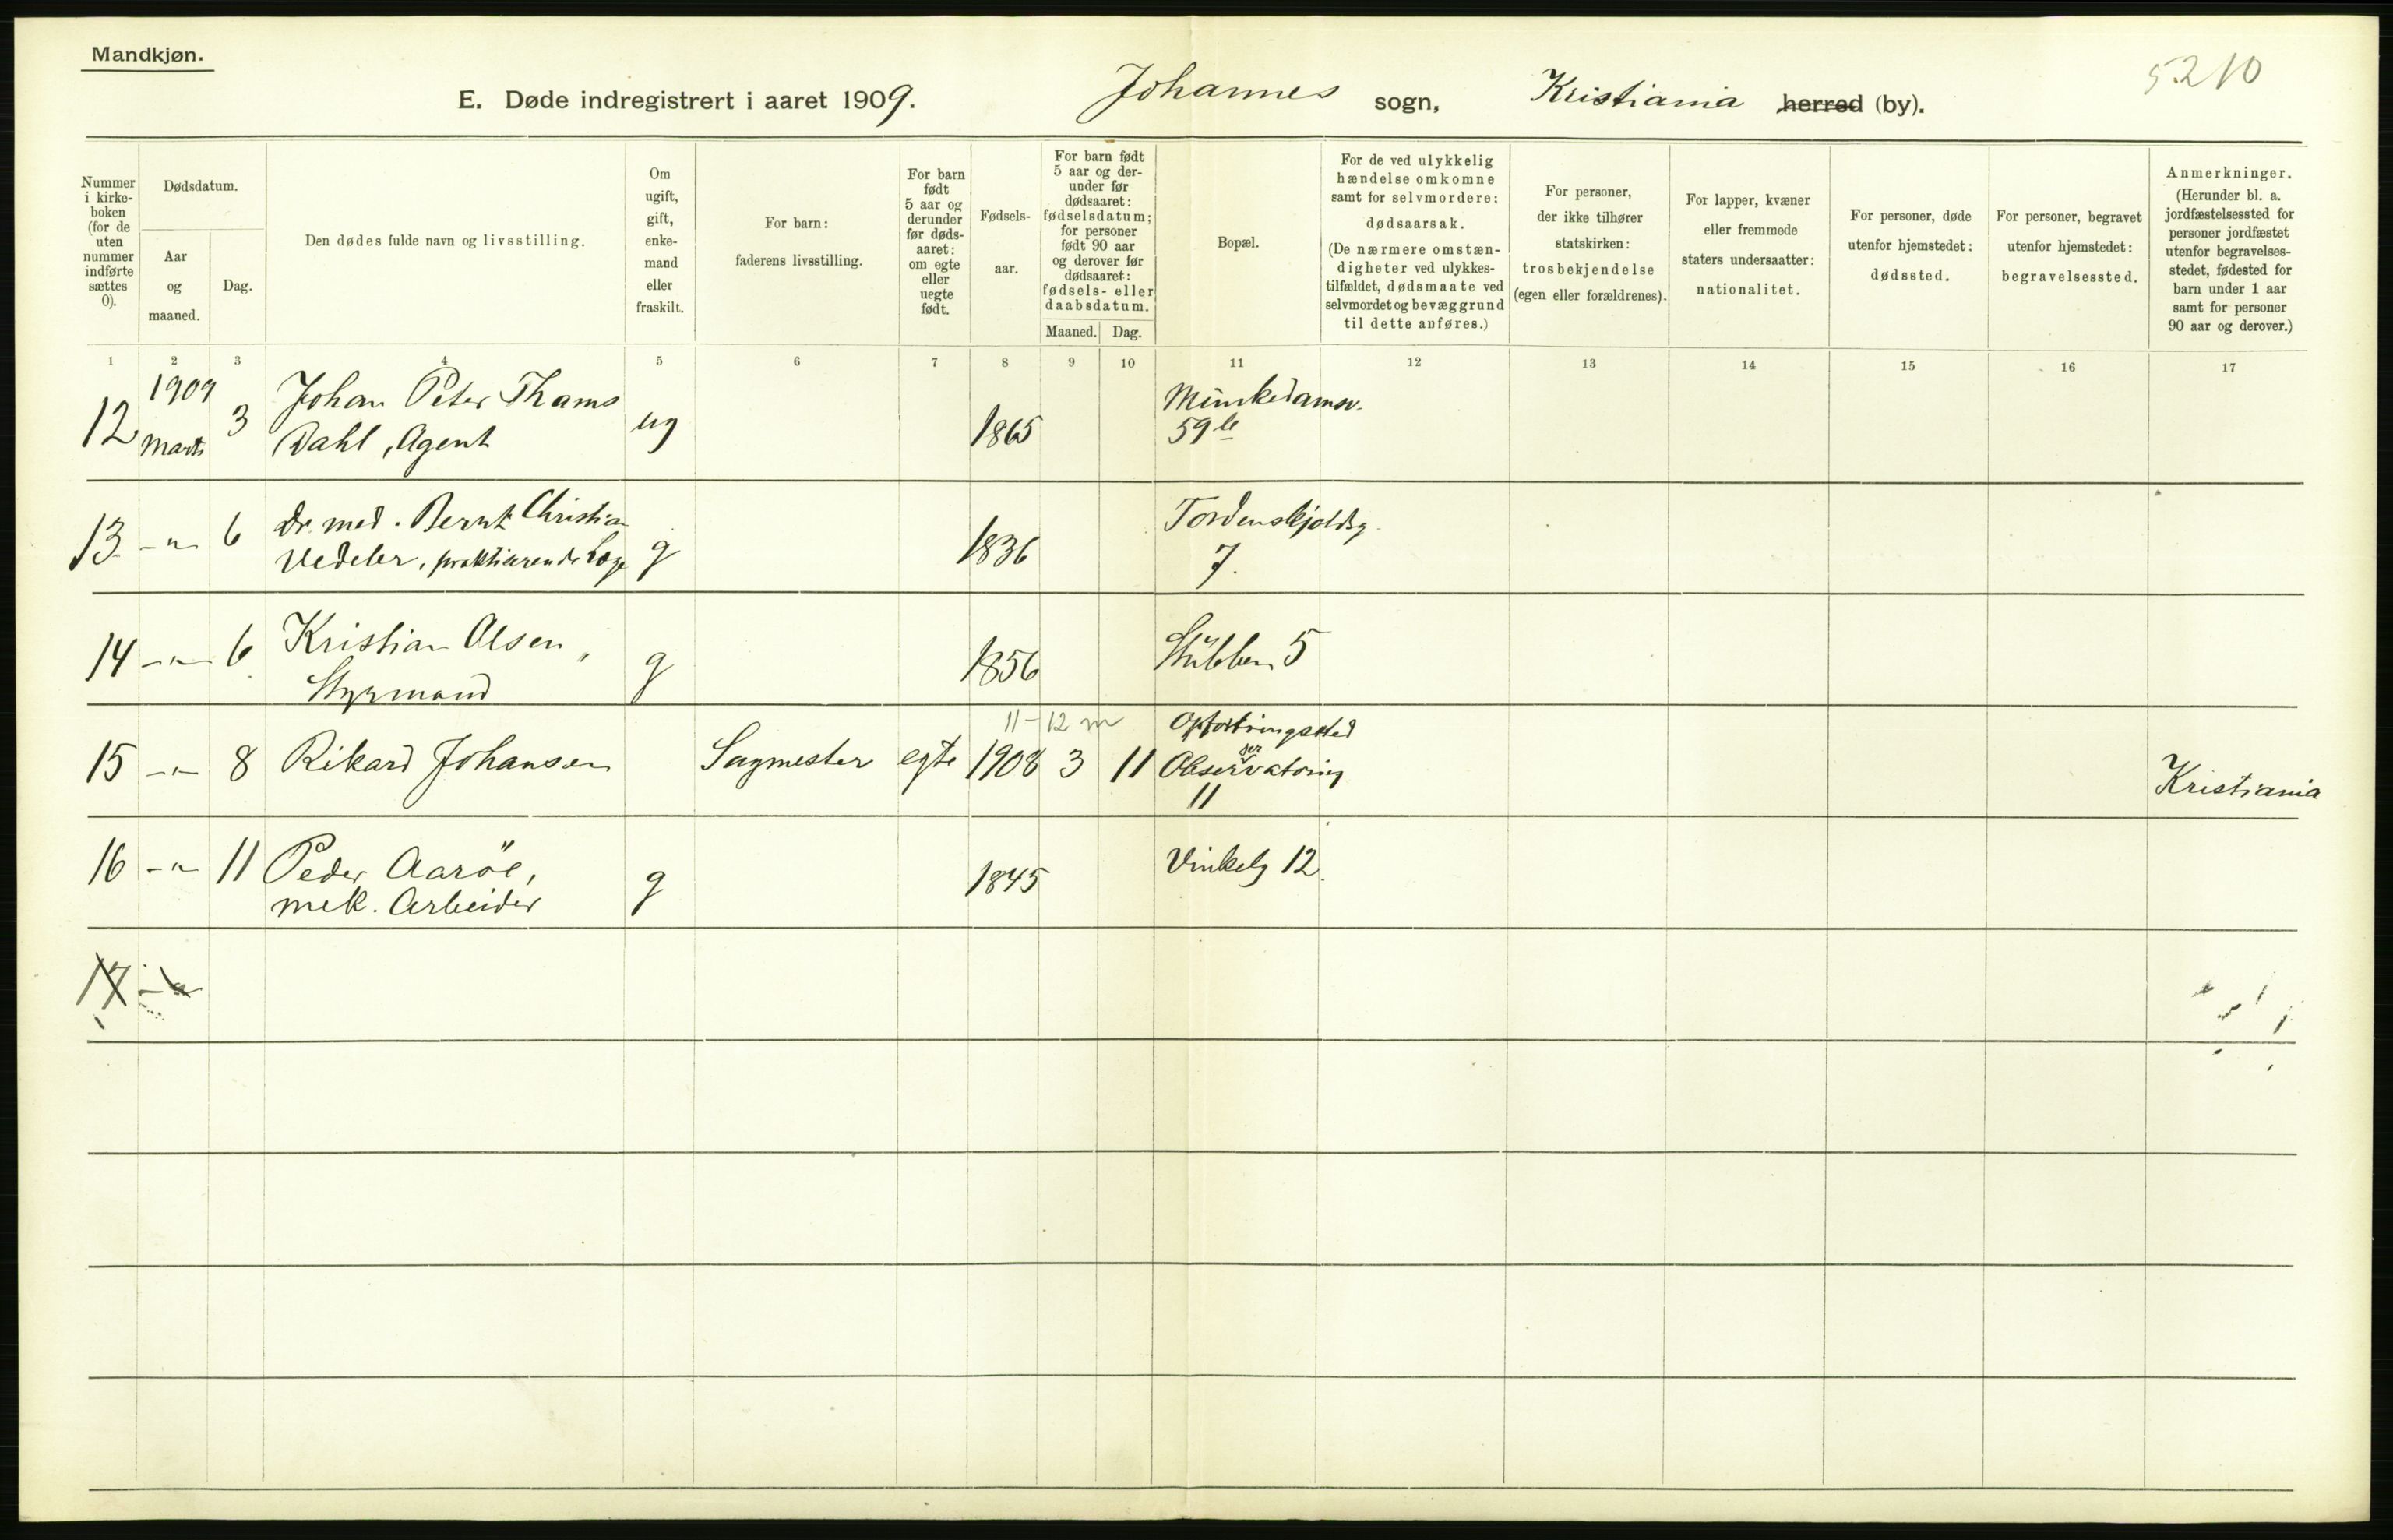 Mandkjøn.
5210
E. Døde indregistrert i aaret 1909. Johannes sogn, Kristiania herred (by).
Nummer i kirke- boken (for de uten nummer indførte sættes 0).
Dødsdatum.
Aar og maaned.
Dag.
Den dødes fulde navn og livsstilling.
Om ugift, gift, enke- mand eller fraskilt.
For barn: faderens livsstilling.
For barn født 5 aar og derunder før døds- aaret: om egte eller uegte født.
Fødsels- aar.
For barn født 5 aar og der- under før dødsaaret: fødselsdatum; for personer født 90 aar og derover før dødsaaret: fødsels- eller daabsdatum.
Maaned. Dag.
Bopæl.
For de ved ulykkelig hændelse omkomne samt for selvmordere: dødsaarsak. (De nærmere omstæn- digheter ved ulykkes- tilfældet, dødsmaate ved selvmordet og bevæggrund til dette anføres.)
For personer, der ikke tilhører statskirken: trosbekjendelse (egen eller forældrenes).
For lapper, kvæner eller fremmede staters undersaatter: nationalitet.
For personer, døde utenfor hjemstedet: dødssted.
For personer, begravet utenfor hjemstedet: begravelsessted.
Anmerkninger. (Herunder bl. a. jordfæstelsessted for personer jordfæstet utenfor begravelses- stedet, fødested for barn under 1 aar samt for personer 90 aar og derover.)
1 2 3 4 5 6 7 8 9 10 11 12 13 14 15 16 17
1909 Johan Peter Thams Munkedamsv.
12 Marts 3 Dahl, Agent ug 1865 59 b
13 -"- 6 Dr. med. Bernt Christian g 1836 Tordenskjoldsg.
Vedeler, praktiserende Læge 7.
14 -"- 6 Kristian Olsen, g 1856 Stubben 5
Styrmand
11-12 m Opfostringssted
15 -"- 8 Rikard Johansen Sagmester egte 1908 3 11 Observatorieg Kristiania
11
16 -"- 11 Peder Aaröe, g 1845 Vinkelg 12.
mek. Arbeider
17 -"-